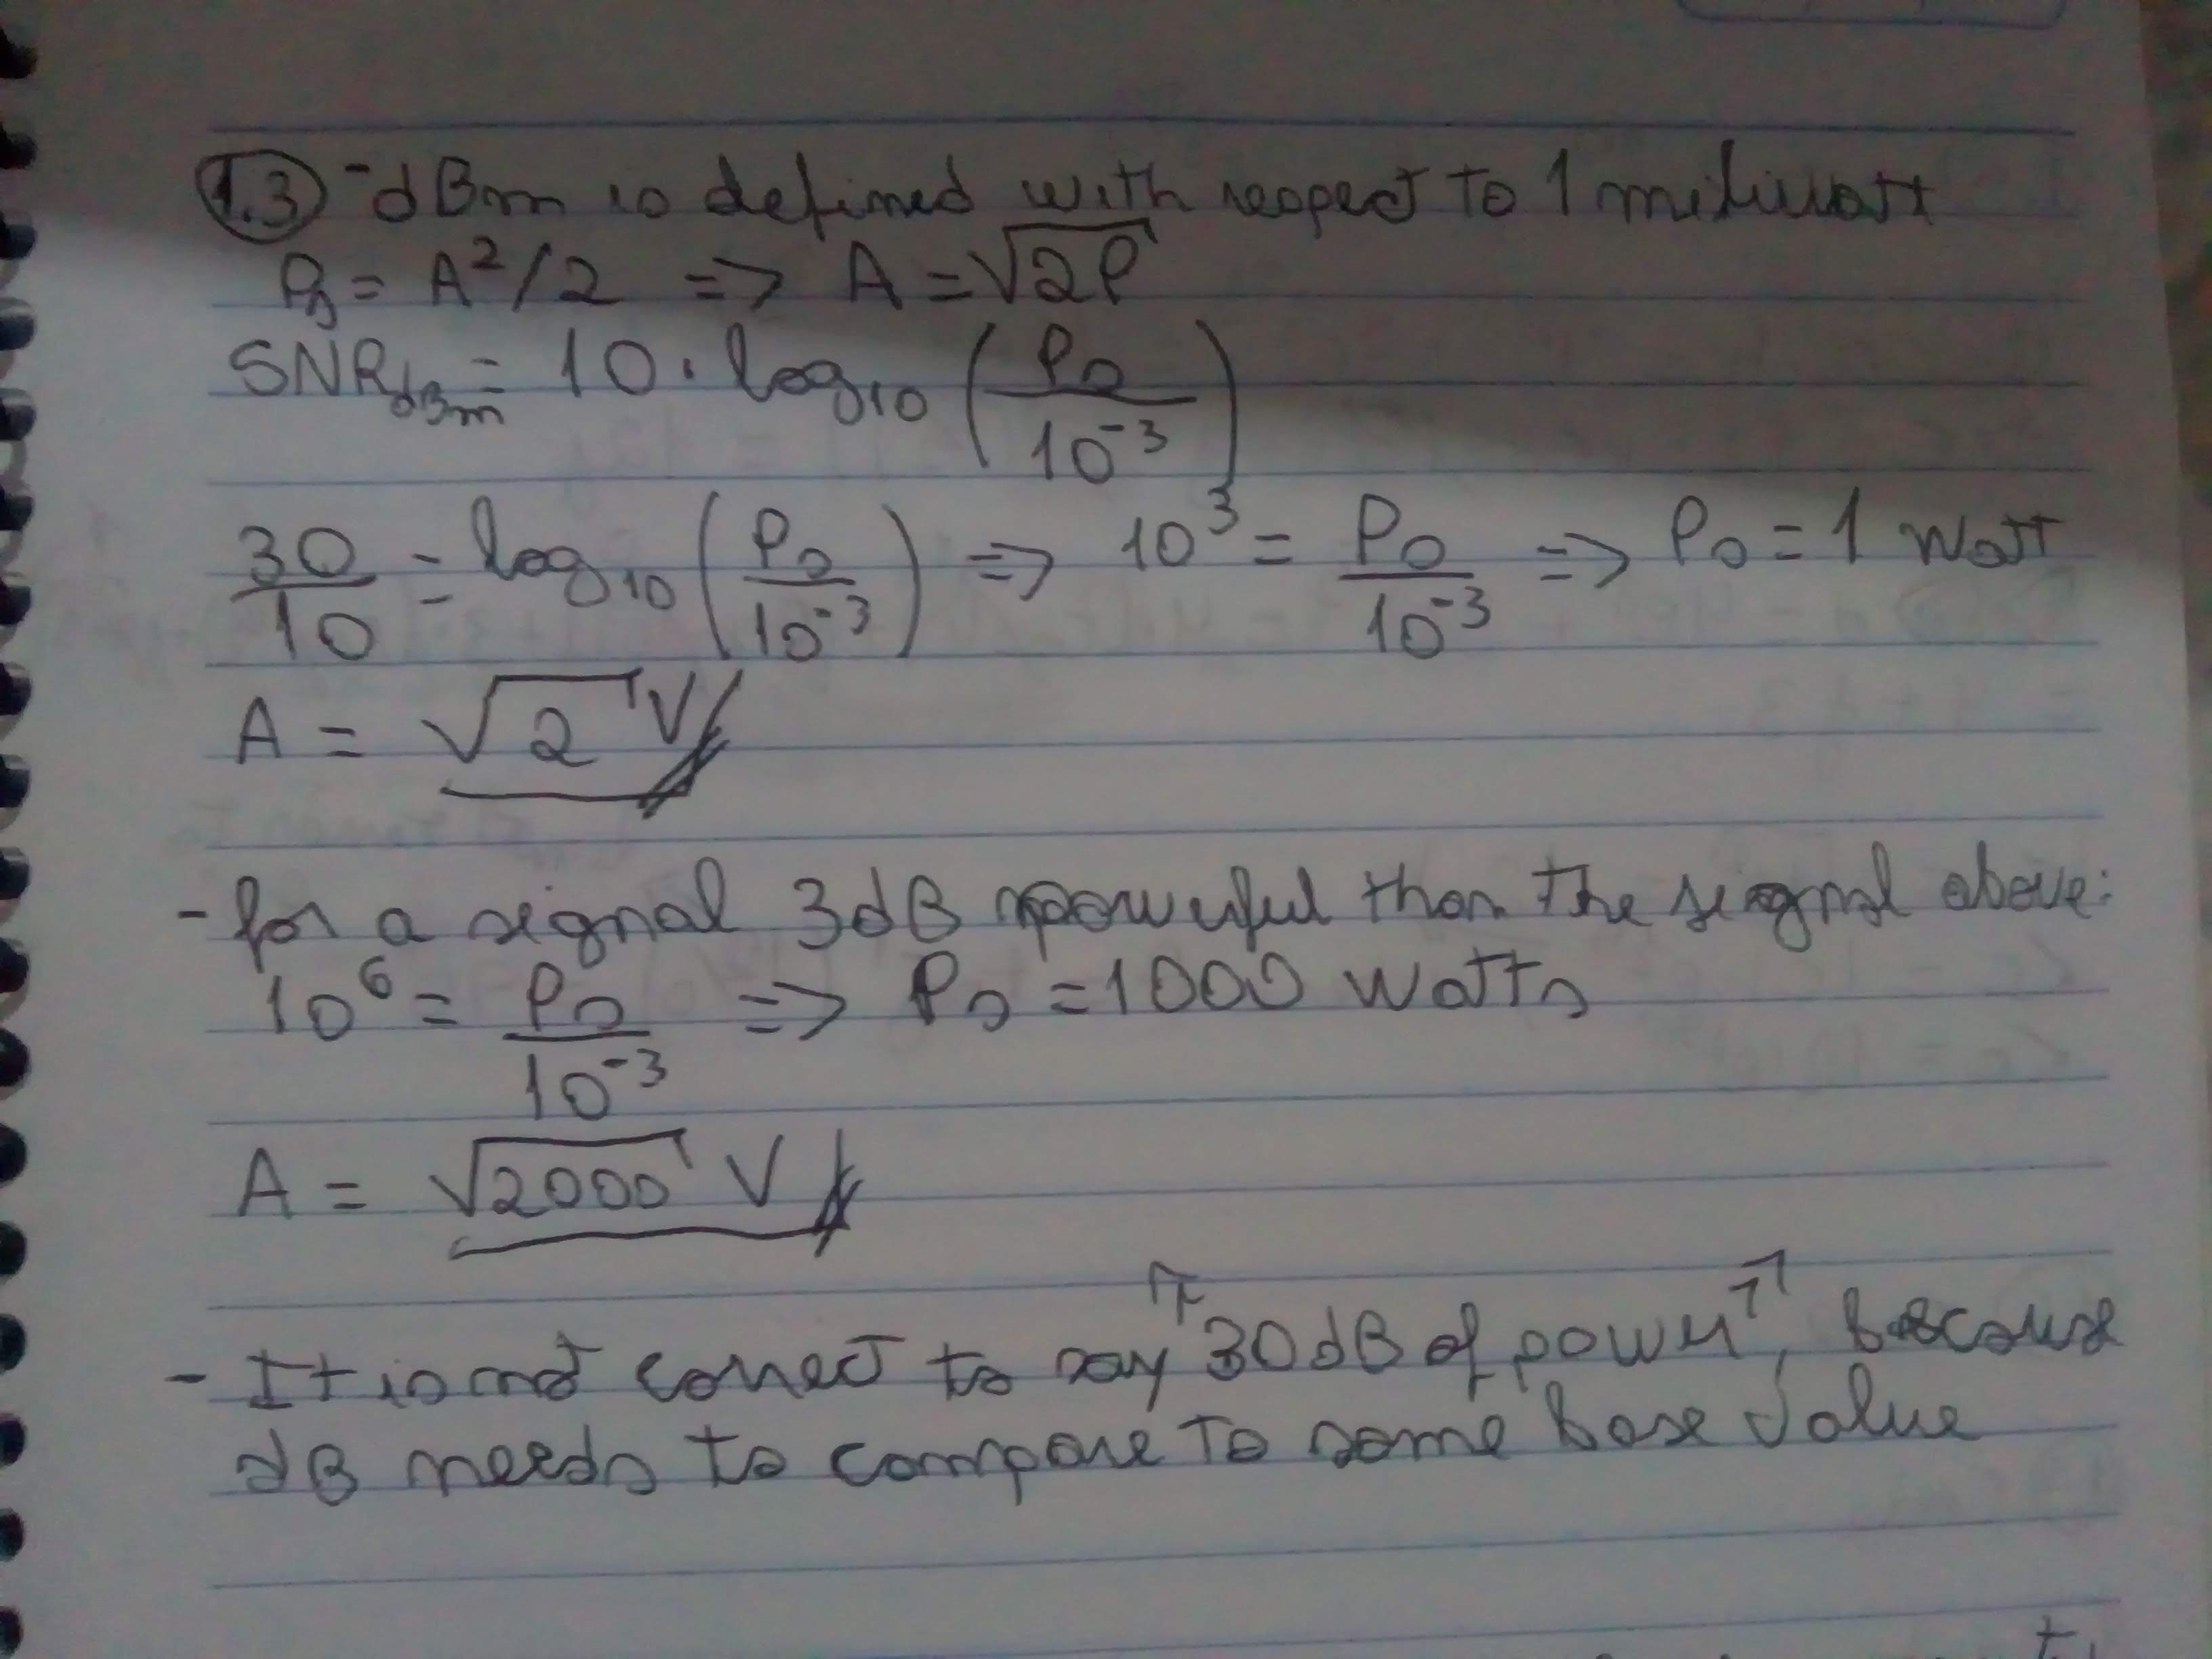 1.3 - dBm is defined with respect to 1 miliwatt
P_0 = A²/2 => A = √2P
SNR_dBm = 10 · log₁₀ (P_0 / 10⁻³)
30/10 = log₁₀ (P_0 / 10⁻³) => 10³ = P_0 / 10⁻³ => P_0 = 1 Watt
A = √2 V
- for a signal 3dB powerful than the signal above:
10⁶ = P_0 / 10⁻³ => P_0 = 1000 Watts
A = √2000 V
- It is not correct to say "30 dB of power", because
dB needs to compare to some base value